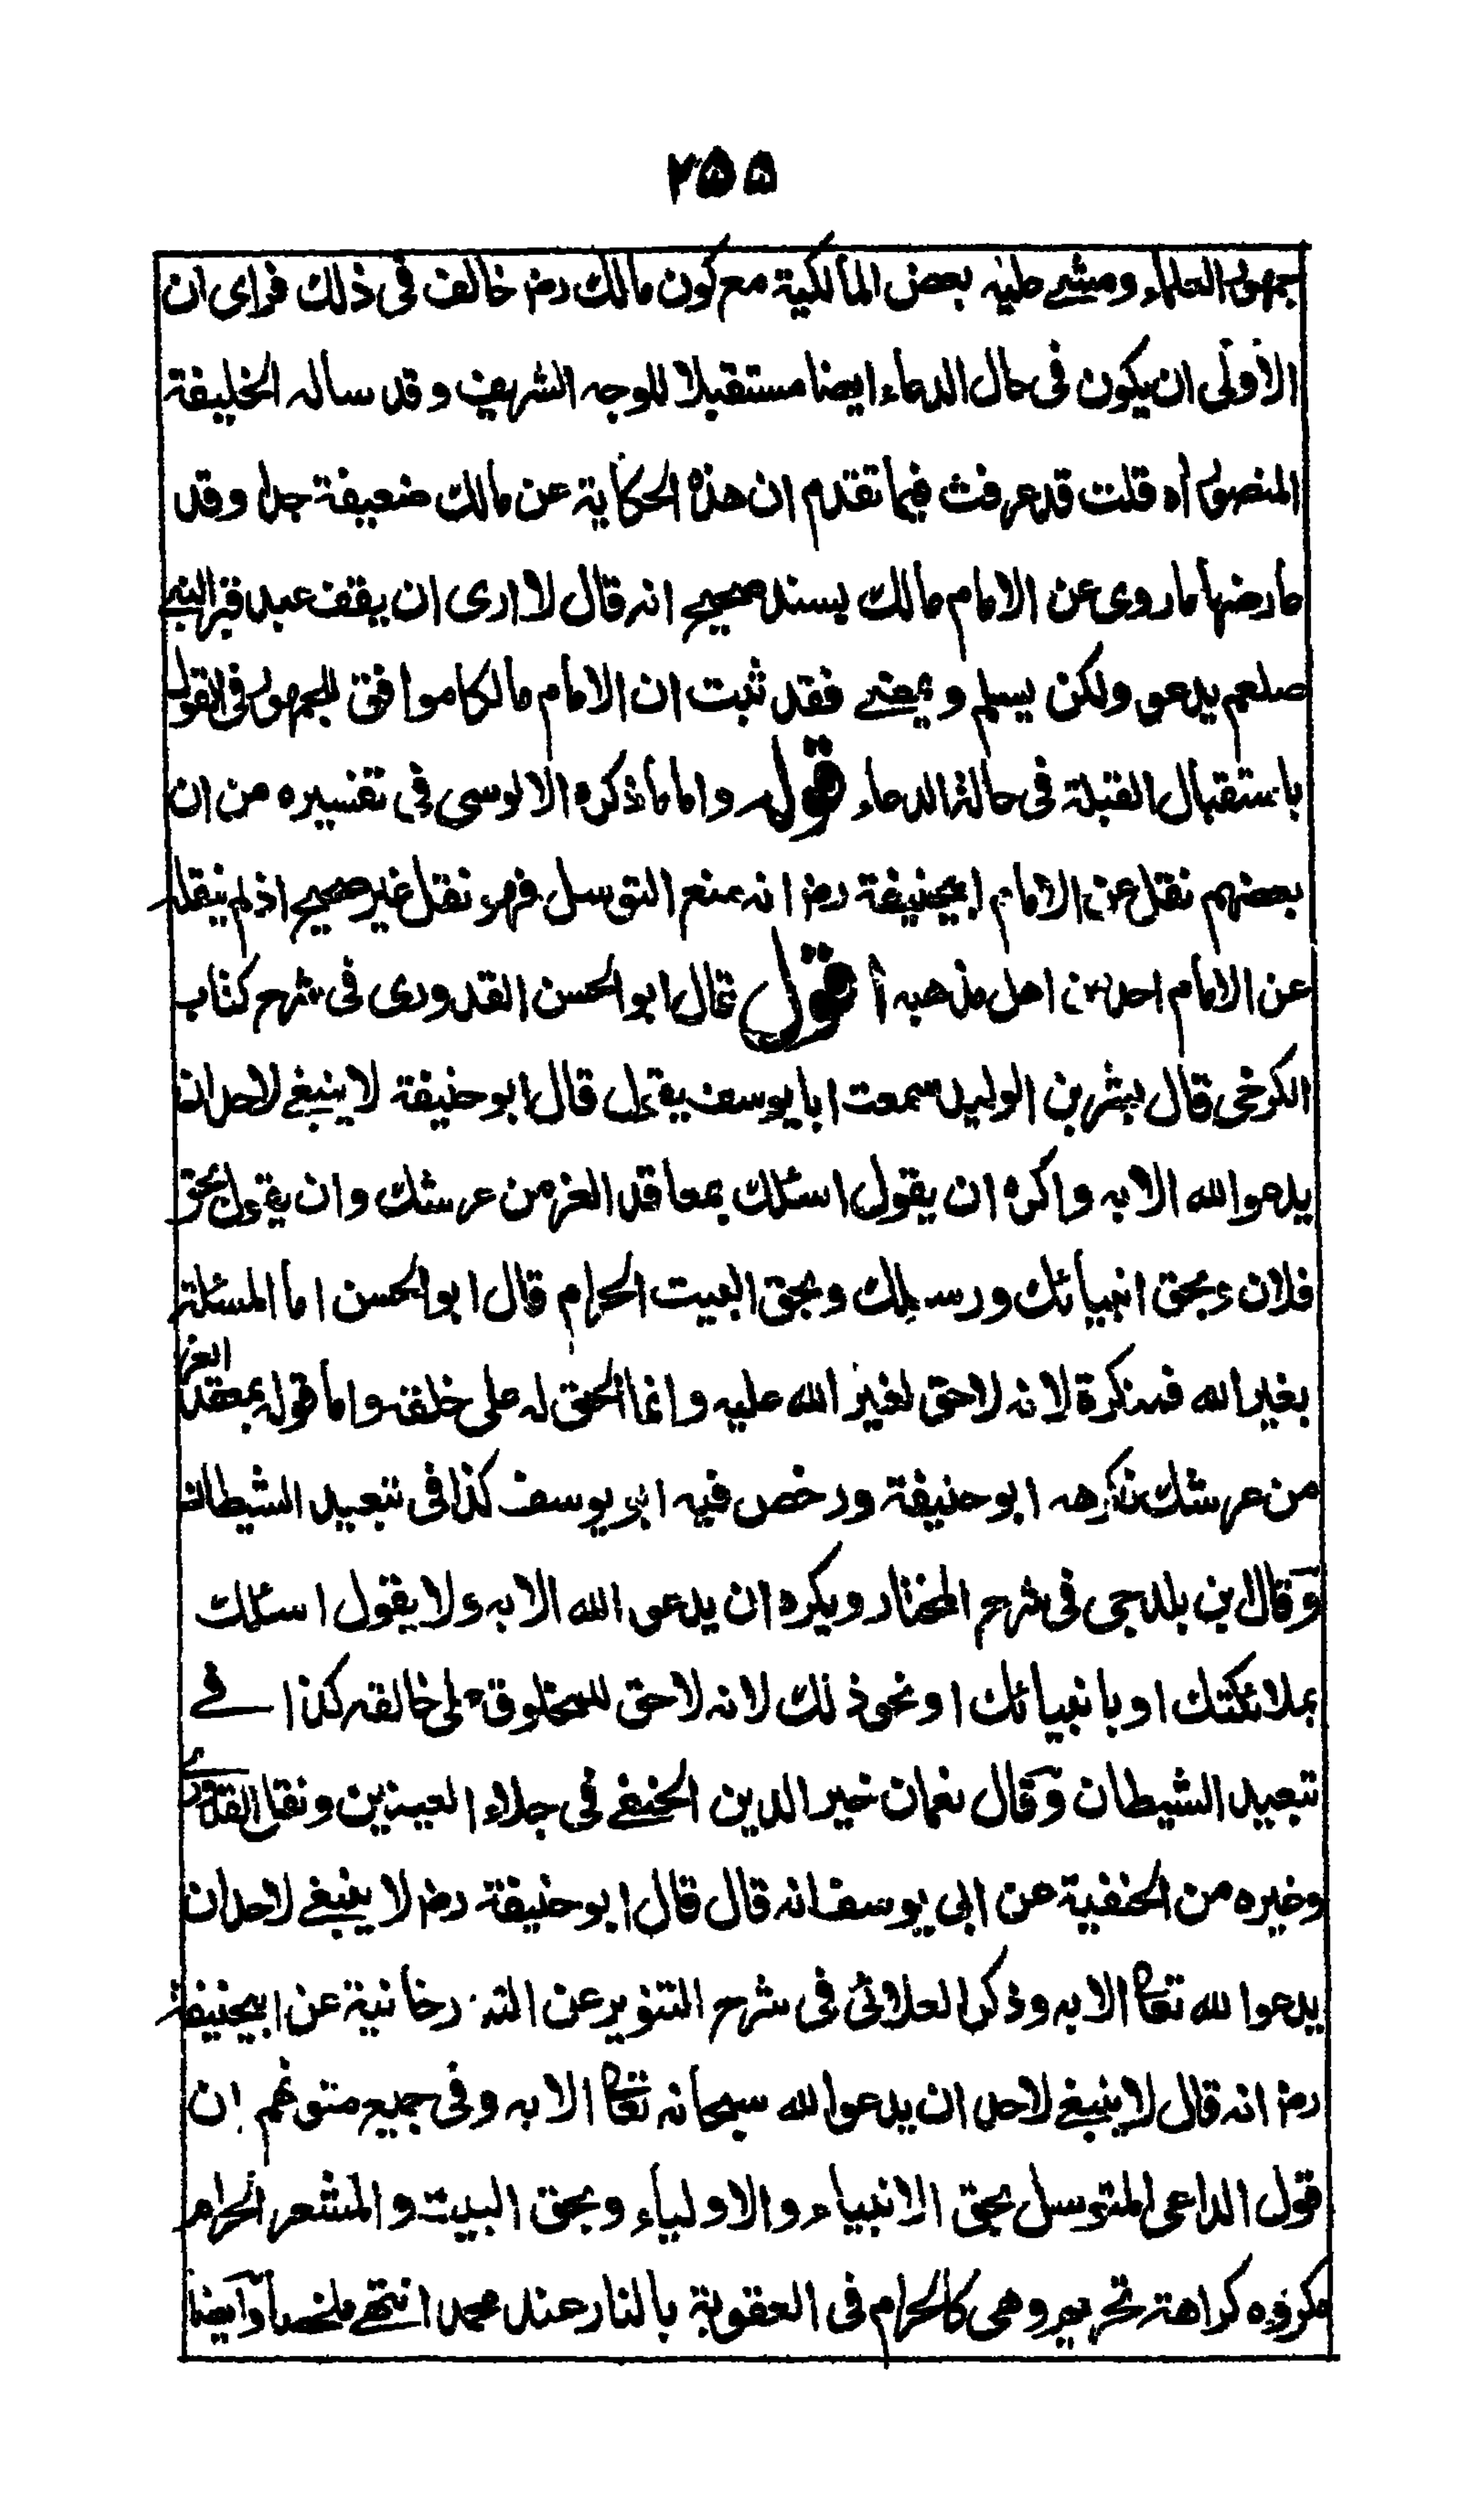 ۲۵۵
جمهور العلماء ومشى عليه بعض المالكية مع كون مالك رض خالف فى ذلك فراى ان
الاولى ان يكون فى حال الدعاء ايضا مستقبلا للوجه الشريف وقد ساله الخليفة
المنصور اه قلت قد عرفت فيما تقدم ان هذه الحكاية عن مالك ضعيفة جدا وقد
عارضها ما روى عن الامام مالك بسند صحيح انه قال لا ارى ان يقف عند قبر النبى
صلعم يدعو ولكن يسلم ويمضى فقد ثبت ان الامام مالكا موافق للجمهور فى القول
باستقبال القبلة فى حالة الدعاء قوله واما ما ذكره الالوسى فى تفسيره من ان
بعضهم نقل عن الامام ابيحنيفة رض انه منع التوسل فهو نقل غير صحيح اذ لم ينقله
عن الامام احد من اهل مذهبه أقول قال ابو الحسن القدورى فى شرح كتاب
الكرخى قال بشر بن الوليد سمعت ابا يوسف يقول قال ابو حنيفة لا ينبغى لاحد ان
يدعو الله الا به واكره ان يقول اسئلك بمعاقد العز من عرشك وان يقول بحق
فلان وبحق انبيائك ورسلك وبحق البيت الحرام قال ابو الحسن اما المسئلة
بغير الله فمنكرة لانه لا حق لغير الله عليه وانما الحق له على خلقه واما قوله بمعقد العز
من عرشك فكرهه ابو حنيفة ورخص فيه ابو يوسف كذا فى تبعيد الشيطان
وقال ابن بلدجى فى شرح المختار ويكره ان يدعو الله الا به ولا يقول اسئلك
بملائكتك او بانبيائك او نحو ذلك لانه لا حق للمخلوق على خالقه كذا فى
تبعيد الشيطان وقال نعمان خير الدين الحنفى فى جلاء العينين ونقل القدورى
وغيره من الحنفية عن ابى يوسف انه قال قال ابو حنيفة رض لا ينبغى لاحد ان
يدعو الله تعا الا به وذكر العلائى فى شرح التنوير عن التتارخانية عن ابيحنيفة
رض انه قال لا ينبغى لاحد ان يدعو الله سبحانه تعا الا به وفى جميع متونهم ان
قول الداعى المتوسل بحق الانبياء والاولياء وبحق البيت والمشعر الحرام
مكروه كراهة تحريم وهى كالحرام فى العقوبة بالنار عند محمد انتهى ملخصا وايضا